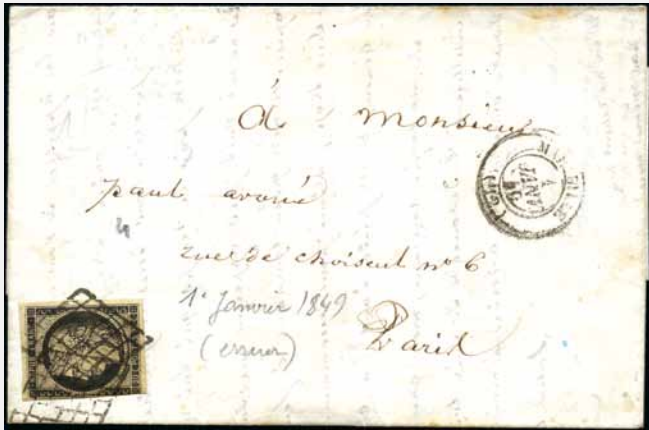 à Monsieur
paul avoué
4
rue de choiseul nº 6
1º Janvier 1849
(erreur)
Paris
1
JANV